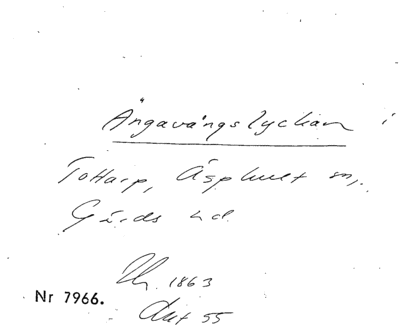 Ängavångslyckan i
Tottarp, Äsphult sn,
Gärds hd.
1863
Nr 7966.
Akt 55